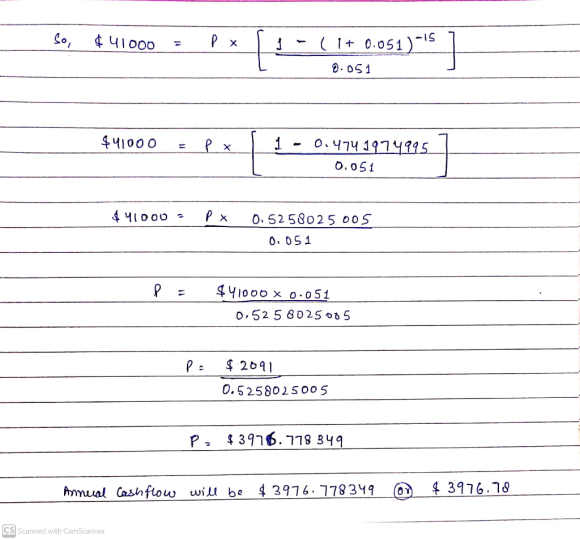 So, $41000 = P × [ 1 - (1 + 0.051)^-15 / 0.051 ]
$41000 = P × [ 1 - 0.4741974995 / 0.051 ]
$41000 = P × 0.5258025005 / 0.051
P = $41000 × 0.051 / 0.5258025005
P = $2091 / 0.5258025005
P = $3976.778349
Annual Cashflow will be $3976.778349 or $3976.78
CS Scanned with CamScanner